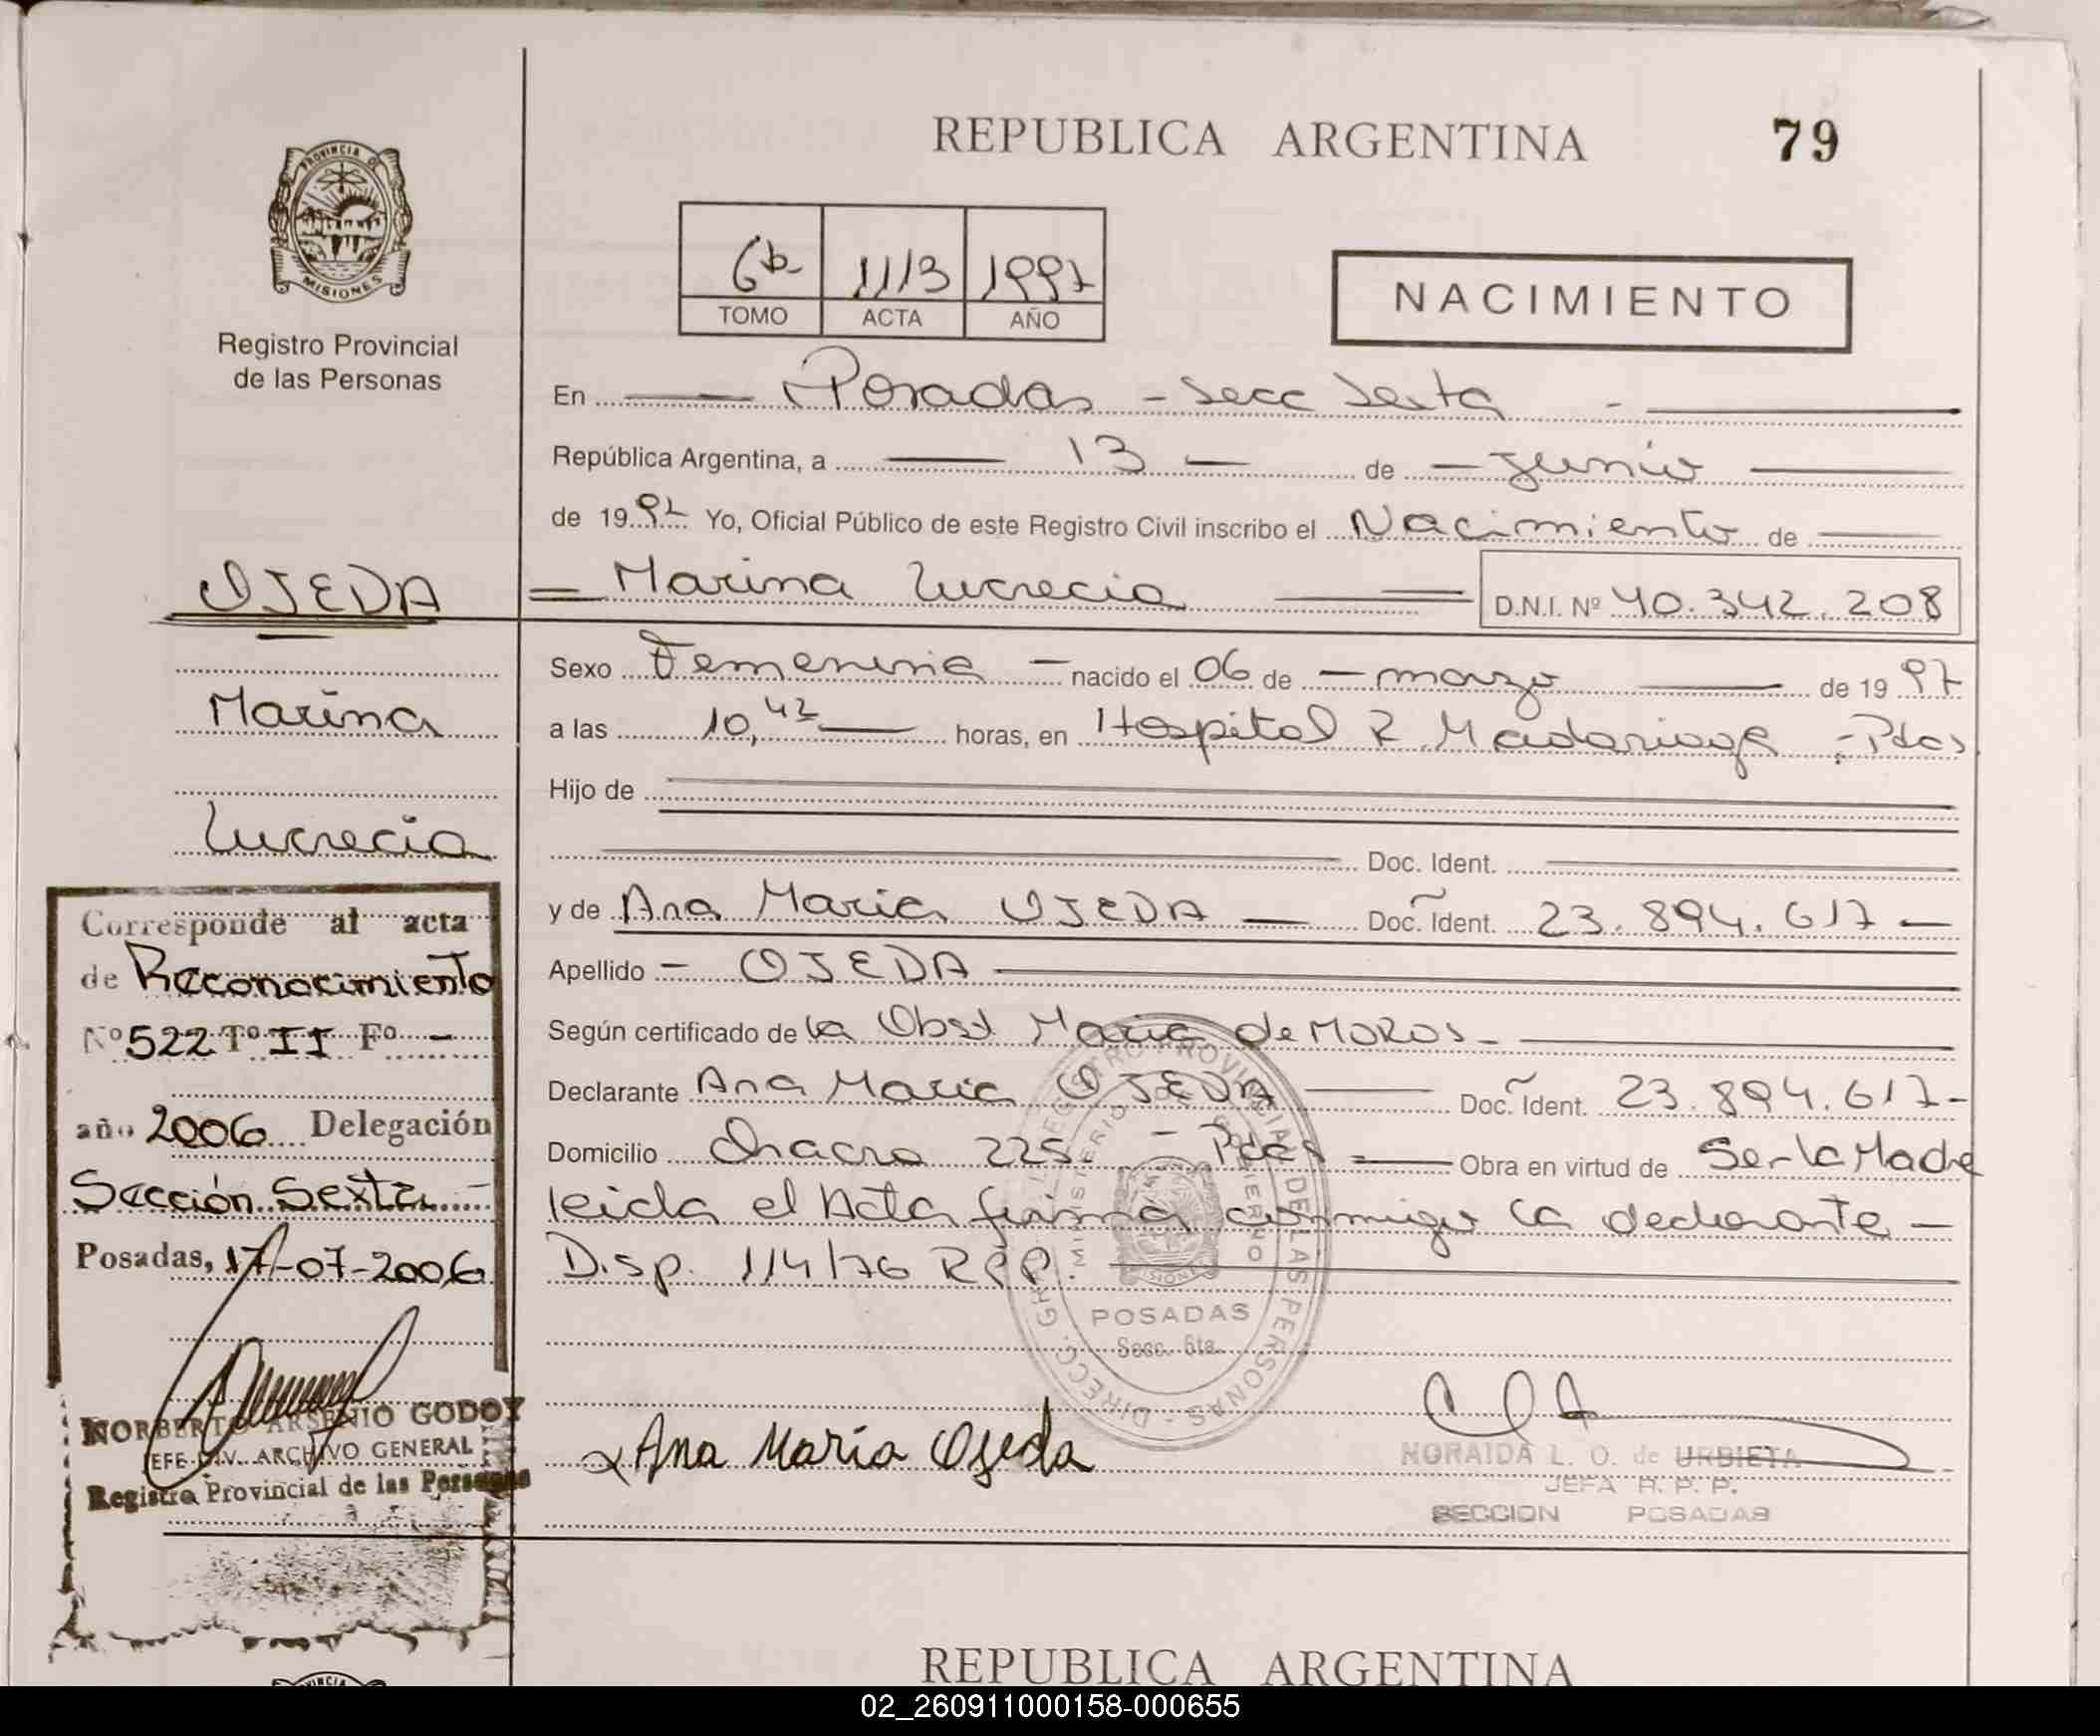 REPUBLICA ARGENTINA 79
PROVINCIA DE MISIONES
Registro Provincial
de las Personas
1113 1997
TOMO ACTA AÑO
NACIMIENTO
En Posadas - Secc Sexta -
República Argentina, a 13 de junio
de 1997 Yo, Oficial Público de este Registro Civil inscribo el Nacimiento de
Marina Lucrecia D.N.I. Nº 40.342.208
Sexo Femenina nacido el 06 de marzo de 1997
a las 10,42 horas, en Hospital R. Madariaga - Pdas
Hijo de
Doc. Ident.
y de Ana Maria OJEDA Doc. Ident. 23.894.617
Apellido - OJEDA
Según certificado de la Obst Maria de MOROS
Declarante Ana Maria OJEDA Doc. Ident. 23.894.617-
Domicilio Chacra 225 - Pdas Obra en virtud de Ser la Madre
leida el Acta firma conmigo la declarante -
Disp. 114/76 RPP.
OJEDA
Marina
Lucrecia
Corresponde al acta
de Reconocimiento
Nº 522 Tº II Fº -
año 2006 Delegación
Sección Sexta -
Posadas, 17-07-2006
NORBERTO ARSENIO GODOY
JEFE DIV. ARCHIVO GENERAL
Registro Provincial de las Personas
DIRECC. GRAL. REGISTRO PROVINCIAL DE LAS PERSONAS
MINISTERIO DE GOBIERNO
MISIONES
POSADAS
Secc. 6ta.
Ana María Ojeda
NORAIDA L. O. de URBIETA
JEFA R. P. P.
SECCION POSADAS
REPUBLICA ARGENTINA
02_260911000158-000655